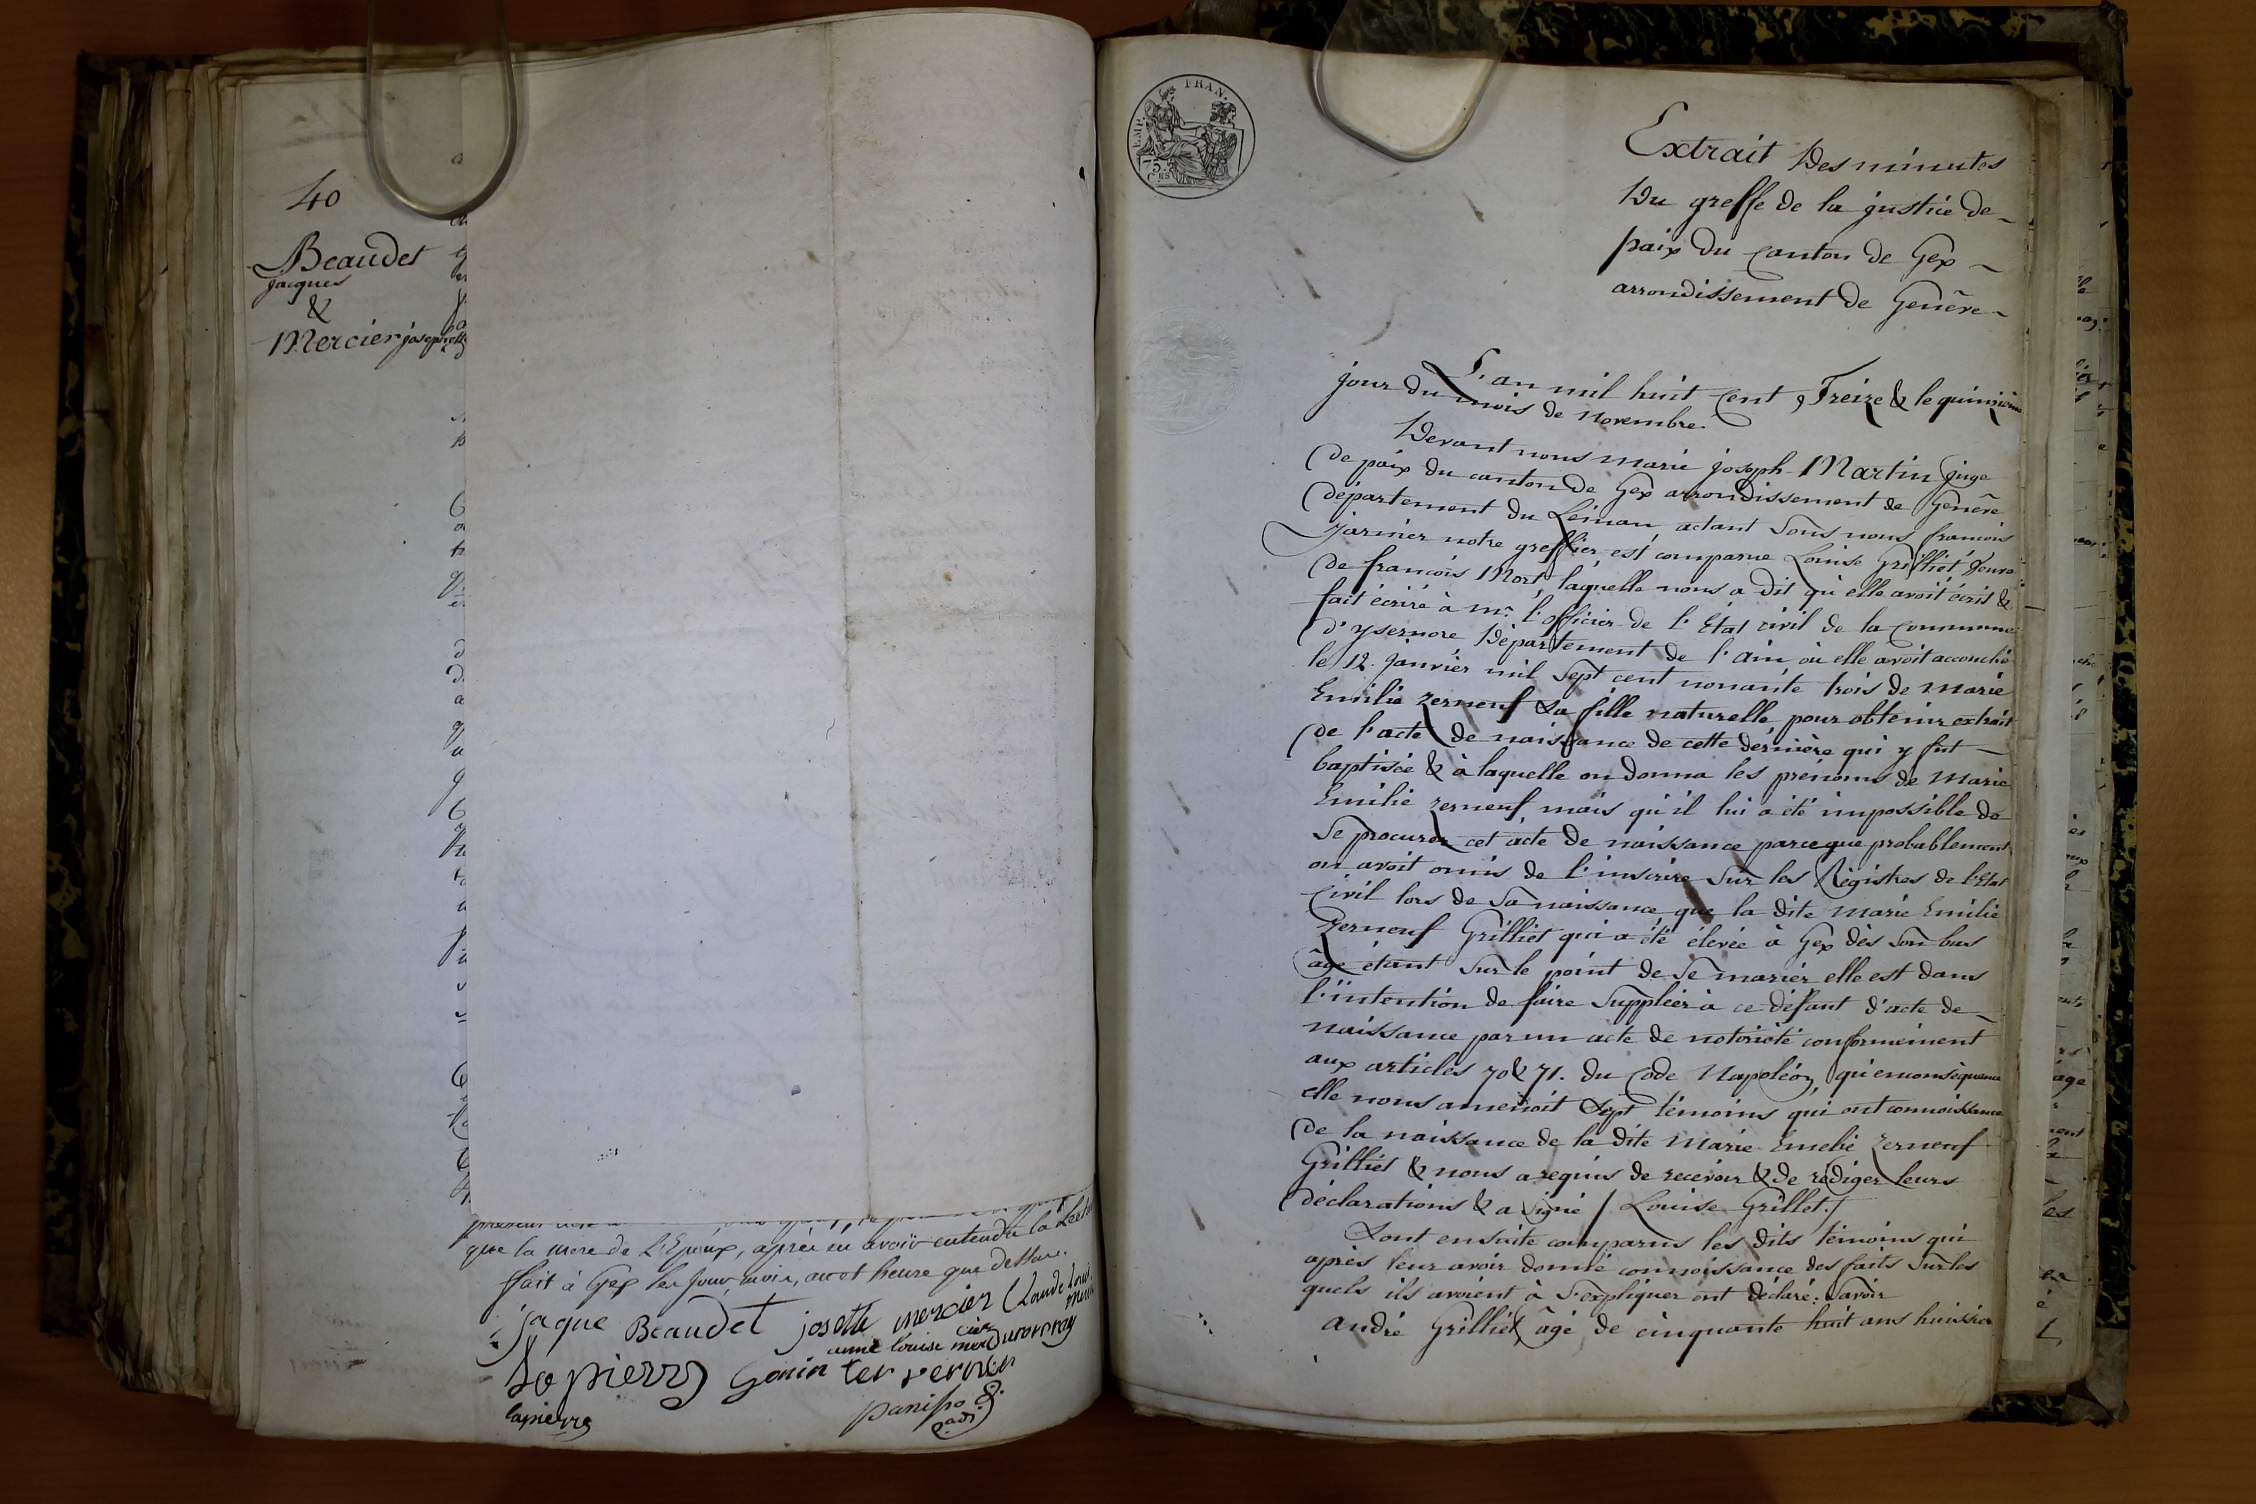 40
Beaudet
jacques
&
Mercier josephette
que la mere de L'Epoux, après en avoir entendu la Lecture
fait à Gex les jour, mois, an et heure que dessus.
jaque Beaudet josette mercier Claude Louis
anne louise mercier Duvernay
lapierre Gonin ter vernier
lapierre
panisso
adj.
EMP. FRAN.
75
Extrait Des minutes
Du greffe de la justice de
paix du Canton de Gex
arrondissement de Genêve
L'an mil huit Cent Treize & le quinzieme
jour du mois de Novembre.
Devant nous marie joseph Martin juge
de paix du canton de Gex arrondissement de Genêve
département du Léman, actant sous nous francois
jarinier notre greffier est comparue Louise Grilliet veuve
de francois Mort, laquelle nous a dit qu'elle avoit écrit &
fait écrire à mr. l'officier de l'Etat civil de la Commune
d'ysernore Département de l'Ain, où elle avoit accouché
le 12. janvier mil sept cent nonante trois de Marie
Emilie zerneuf sa fille naturelle pour obtenir extrait
de l'acte de naissance de cette dernière qui y fut
baptisée & à laquelle on donna les prénoms de Marie
Emilie zerneuf, mais qu'il lui a été impossible de
se procurer cet acte de naissance parceque probablement
on avoit omis de l'inscrire sur les Régistres de l'Etat
Civil lors de sa naissance, que la dite Marie Emilie
Zerneuf Grilliet qui a été élevée à Gex dès son bas
âge étant sur le point de se marier elle est dans
l'intention de faire suppléer à ce défaut d'acte de
naissance par un acte de notoriété conformément
aux articles 70 & 71. du Code Napoléon, qu'enconséquence
elle nous amenoit sept témoins qui ont connoissance
de la naissance de la dite Marie Emelie zerneuf
Grilliet & nous a requis de recevoir & de rédiger leurs
déclarations & a signé / Louise Grillet. /
Sont ensuite comparus les dits témoins qui
après leur avoir donné connoissance des faits sur les
quels ils avoient à s'expliquer ont déclaré: savoir
André Grilliet, âgé de cinquante huit ans huissier